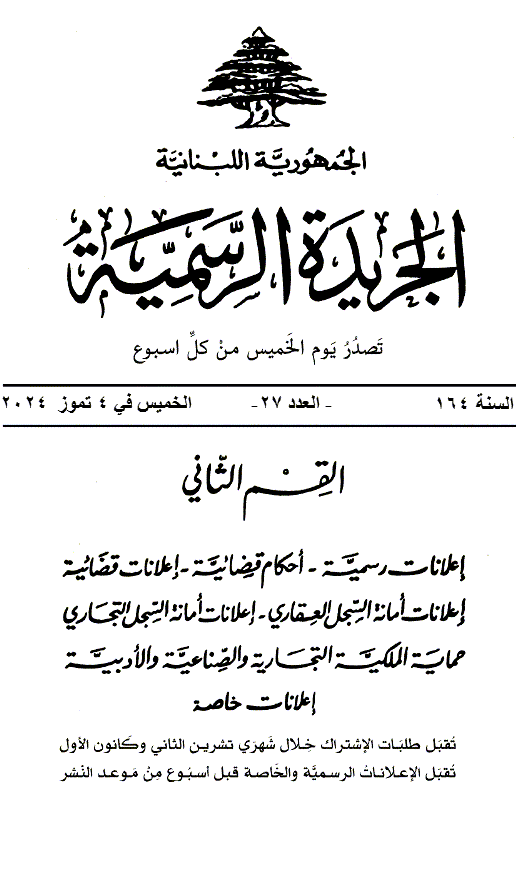 الجمهورية اللبنانية
الجريدة الرسمية
تَصدُرُ يَوم الخَميس منْ كلِّ اسبوع
السنة ١٦٤ - العدد ٢٧- الخميس في ٤ تموز ٢٠٢٤
القِسْم الثّاني
إعلانات رسميَّة - أحكام قضائيَّة - إعلانات قضائية
إعلانات أمانة السِّجل العِقاري - إعلانات أمانة السِّجل التجاري
حماية الملكيَّة التجارية والصِّناعيَّة والأدبيَّة
إعلانات خاصة
تُقبَل طلبَات الإشتراك خِلال شَهرَي تشرين الثاني وكَانون الأول
تُقبَل الإعلاناتُ الرسميَّة والخَاصة قبل أسبُوع مِنْ مَوعد النَشر